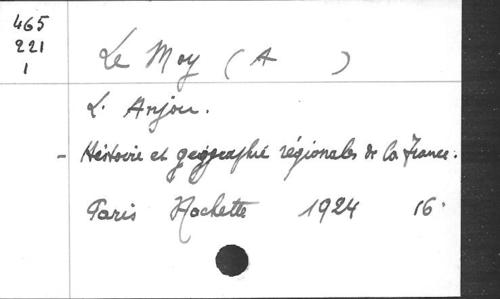 465
221
1
Le Moy (A )
L'Anjou.
- Histoire et géographie régionales de la France.
Paris Hachette 1924 16°